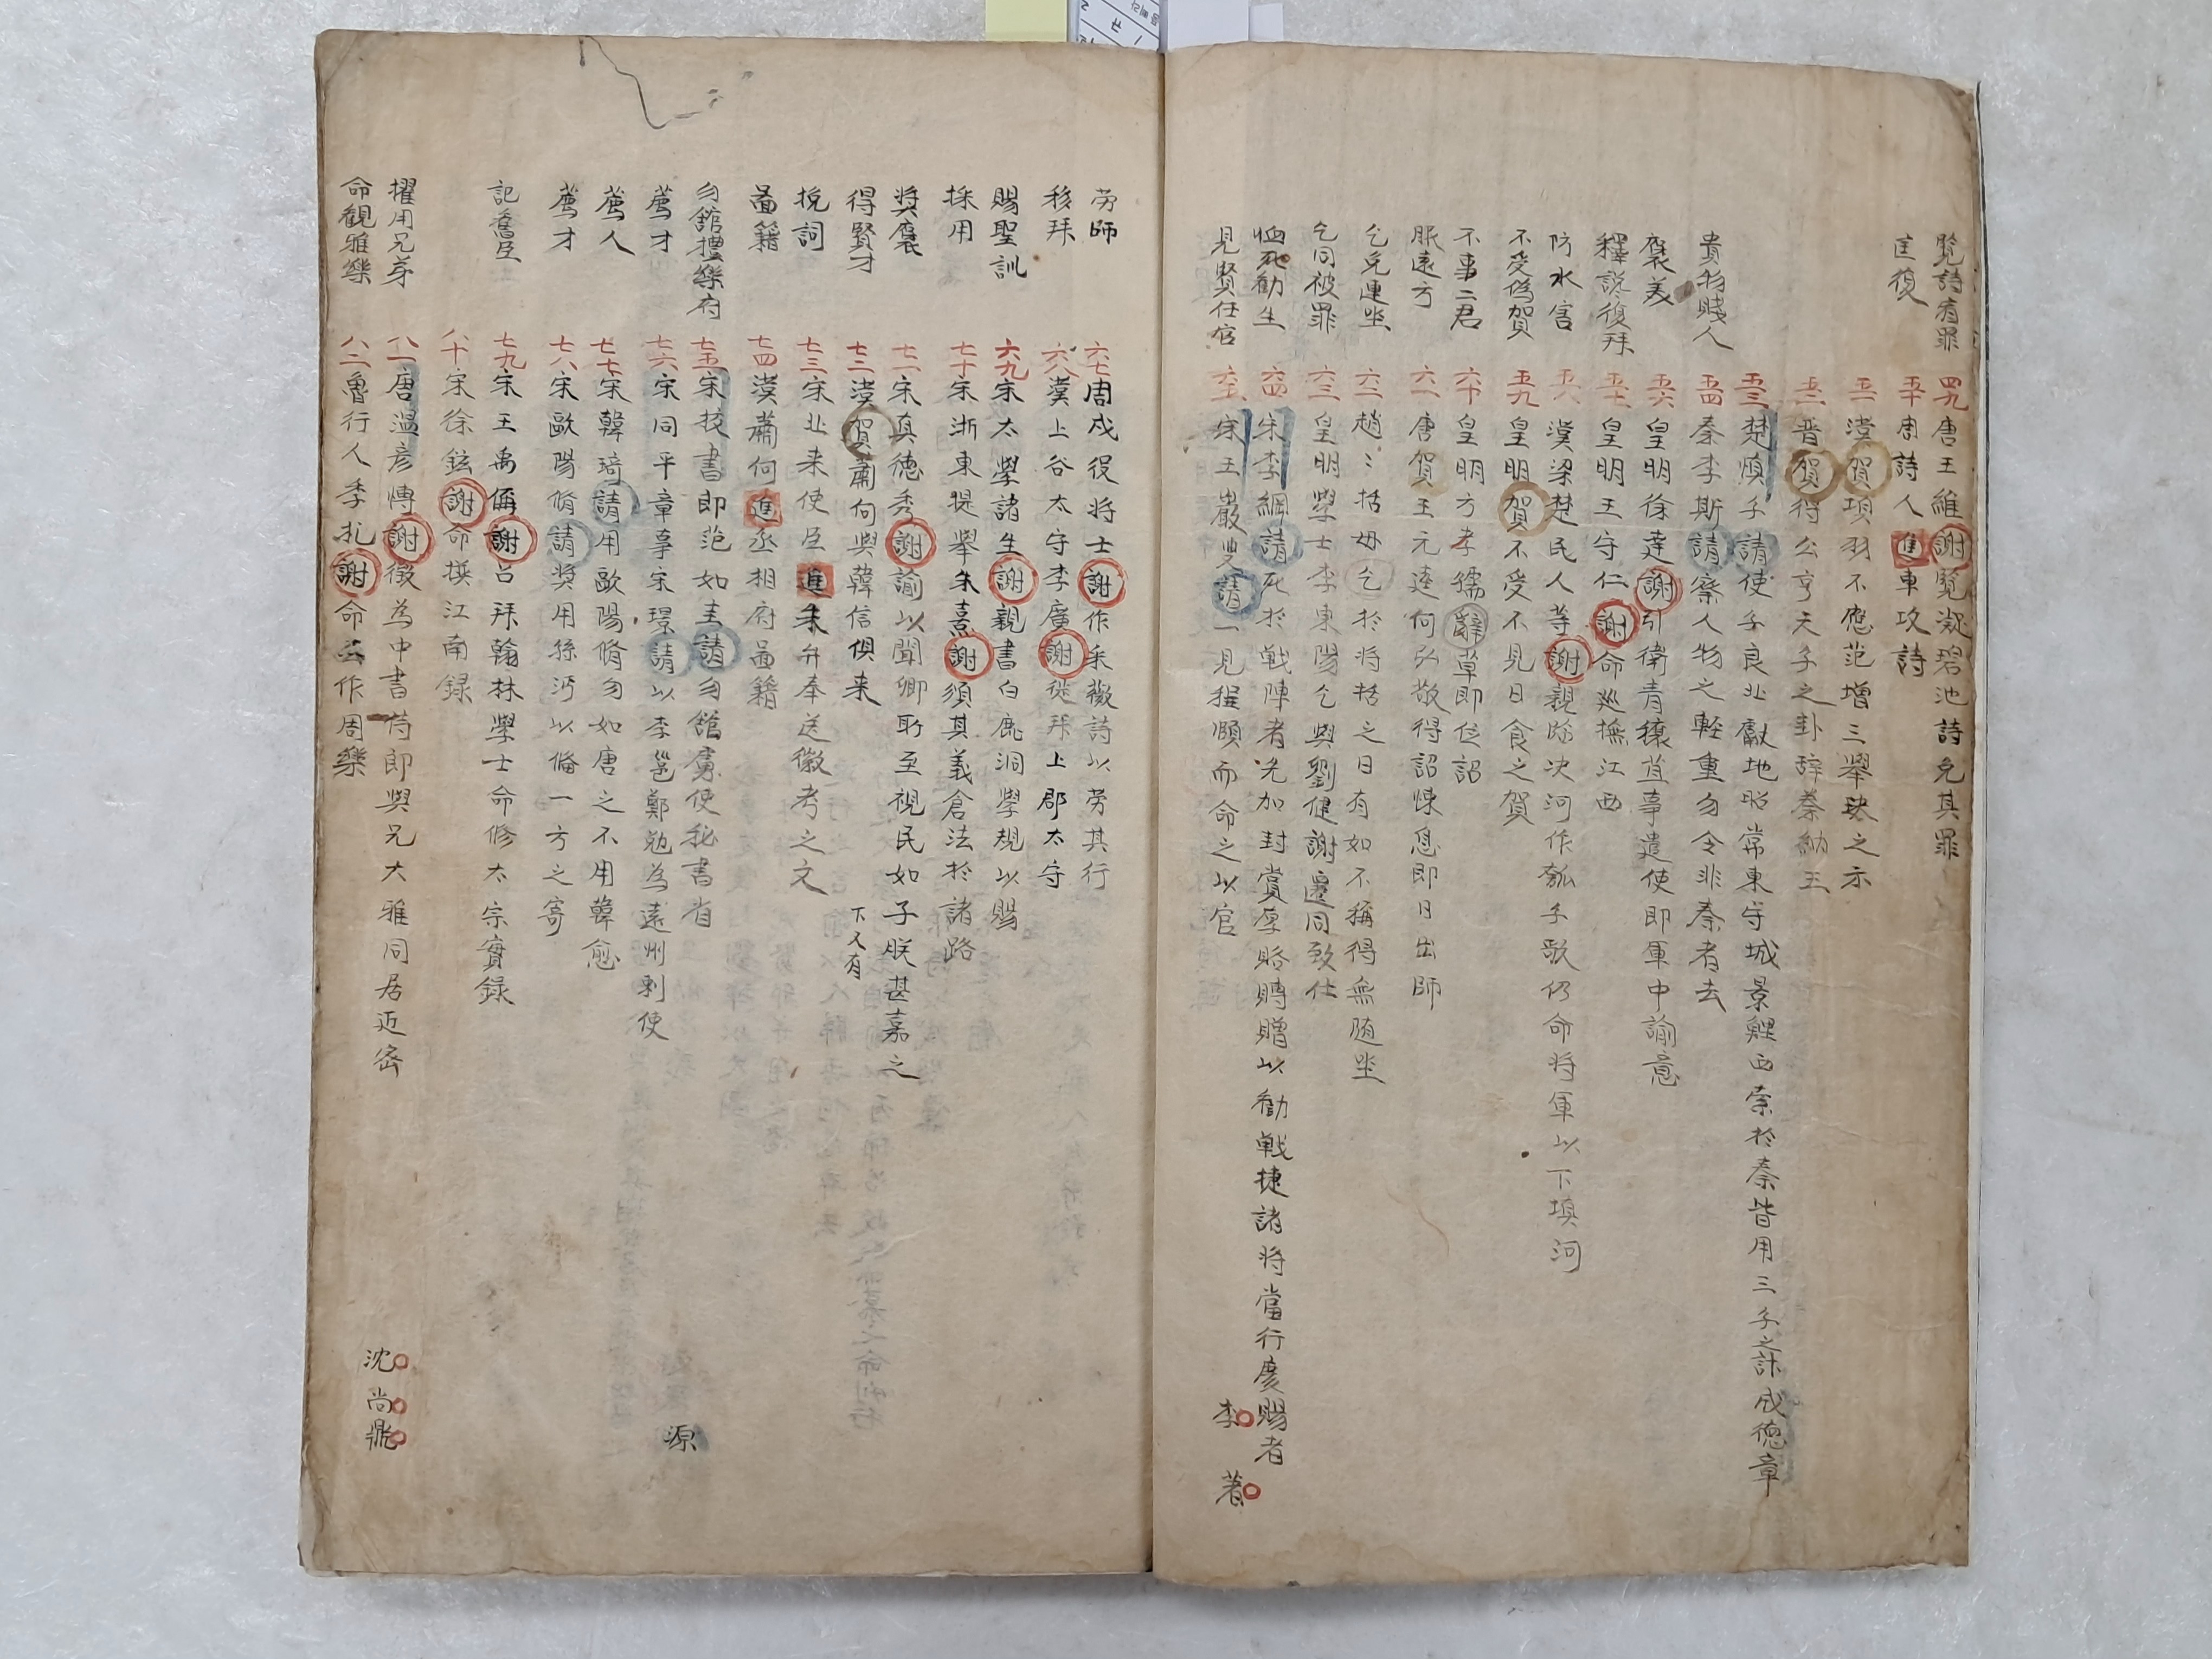 覽詩宥罪
四九唐王維謝覽凝碧池詩免其罪
匡復
五十周詩人進車攻詩
五一漢賀項羽不應范增三擧玦之示
五二晋賀得公亨天子之卦辞秦納王
五三楚愼子請使子良北獻地昭常東守城景鯉西索於秦皆用三子之計成德章
貴物賤人
五四秦李斯請察人物之輕重勿令非秦者去
褒美
五六皇明徐達謝引衛青穰苴事遣使即軍中諭意
釋説復拜
五七皇明王守仁謝命巡撫江西
防水害
五八漢梁楚民人等謝親臨决河作瓠子歌仍命將軍以下填河
不受僞賀
五九皇明賀不受不見日食之賀
不事二君
六十皇明方孝孺辭草即位詔
服遠方
六一唐賀王元逵何弘敬得詔悚息即日出師
乞免連坐
六二趙〻括母乞於將括之日有如不稱得無随坐
乞同被罪
六三皇明學士李東陽乞與劉健謝遷同致仕
恤死勸生
六四宋李綱請死於戦陣者光加封賞厚賂賻贈以勸戦捷諸將當行慶賜者
見賢任官
六五宋王巖叟請一見程頤而命之以官
李 著
勞師
六七周戍役將士謝作采薇詩以勞其行
移拜
六八漢上谷太守李廣謝徙拜上郡太守
賜聖訓
六九宋太學諸生謝親書白鹿洞學規以賜
採用
七十宋浙東提擧朱熹謝須其義倉法於諸路
奬褒
七一宋真德秀謝諭以聞卿所至視民如子朕甚嘉之
得賢才
七二漢賀蕭何與韓信俱来
下又有
挽詞
七三宋北来使臣進来弁奉送徽考之文
啚籍
七四漢蕭何進丞相府啚籍
勿館禮樂府
七五宋校書郎范如圭請勿館虜使秘書省
薦才
七六宋同平章事宋璟請以李邕鄭勉為遠州刺使
薦人
七七宋韓琦請用歐陽脩勿如唐之不用韓愈
薦才
七八宋歐陽脩請奬用孫沔以備一方之寄
記舊臣
七九宋王禹偁謝召拜翰林學士命修太宗實録
八十宋徐鉉謝命撰江南録
擢用兄弟
八一唐溫彦愽謝徵為中書侍郎與兄大雅同居近密
命觀雅樂
八二魯行人季扎謝命工作周樂
源
沈尚鼎